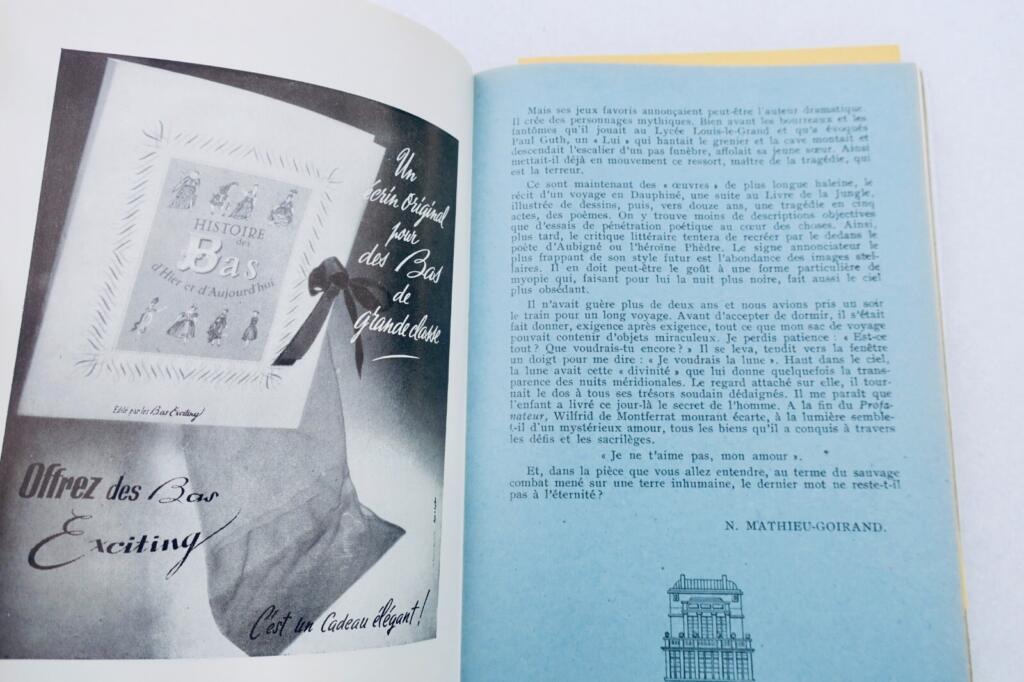 Un
écrin original
pour
des Bas
de
grande classe
HISTOIRE
des
Bas
d'Hier et d'Aujourd'hui
Edité par les Bas Exciting
Offrez des Bas
Exciting
C'est un Cadeau élégant !
Mais ses jeux favoris annonçaient peut-être l'auteur dramatique.
Il crée des personnages mythiques. Bien avant les bourreaux et les
fantômes qu'il jouait au Lycée Louis-le-Grand et qu'a évoqués
Paul Guth, un « Lui » qui hantait le grenier et la cave montait et
descendait l'escalier d'un pas funèbre, affolait sa jeune sœur. Ainsi
mettait-il déjà en mouvement ce ressort, maître de la tragédie, qui
est la terreur.
Ce sont maintenant des « œuvres » de plus longue haleine, le
récit d'un voyage en Dauphiné, une suite au Livre de la Jungle,
illustrée de dessins, puis, vers douze ans, une tragédie en cinq
actes, des poèmes. On y trouve moins de descriptions objectives
que d'essais de pénétration poétique au cœur des choses. Ainsi,
plus tard, le critique littéraire tentera de recréer par le dedans le
poète d'Aubigné ou l'héroïne Phèdre. Le signe annonciateur le
plus frappant de son style futur est l'abondance des images stel-
laires. Il en doit peut-être le goût à une forme particulière de
myopie qui, faisant pour lui la nuit plus noire, fait aussi le ciel
plus obsédant.
Il n'avait guère plus de deux ans et nous avions pris un soir
le train pour un long voyage. Avant d'accepter de dormir, il s'était
fait donner, exigence après exigence, tout ce que mon sac de voyage
pouvait contenir d'objets miraculeux. Je perdis patience : « Est-ce
tout ? Que voudrais-tu encore ? » Il se leva, tendit vers la fenêtre
un doigt pour me dire : « Je voudrais la lune ». Haut dans le ciel,
la lune avait cette « divinité » que lui donne quelquefois la trans-
parence des nuits méridionales. Le regard attaché sur elle, il tour-
nait le dos à tous ses trésors soudain dédaignés. Il me paraît que
l'enfant a livré ce jour-là le secret de l'homme. A la fin du Profa-
nateur, Wilfrid de Montferrat mourant écarte, à la lumière semble-
t-il d'un mystérieux amour, tous les biens qu'il a conquis à travers
les défis et les sacrilèges.
« Je ne t'aime pas, mon amour ».
Et, dans la pièce que vous allez entendre, au terme du sauvage
combat mené sur une terre inhumaine, le dernier mot ne reste-t-il
pas à l'éternité ?
N. MATHIEU-GOIRAND.